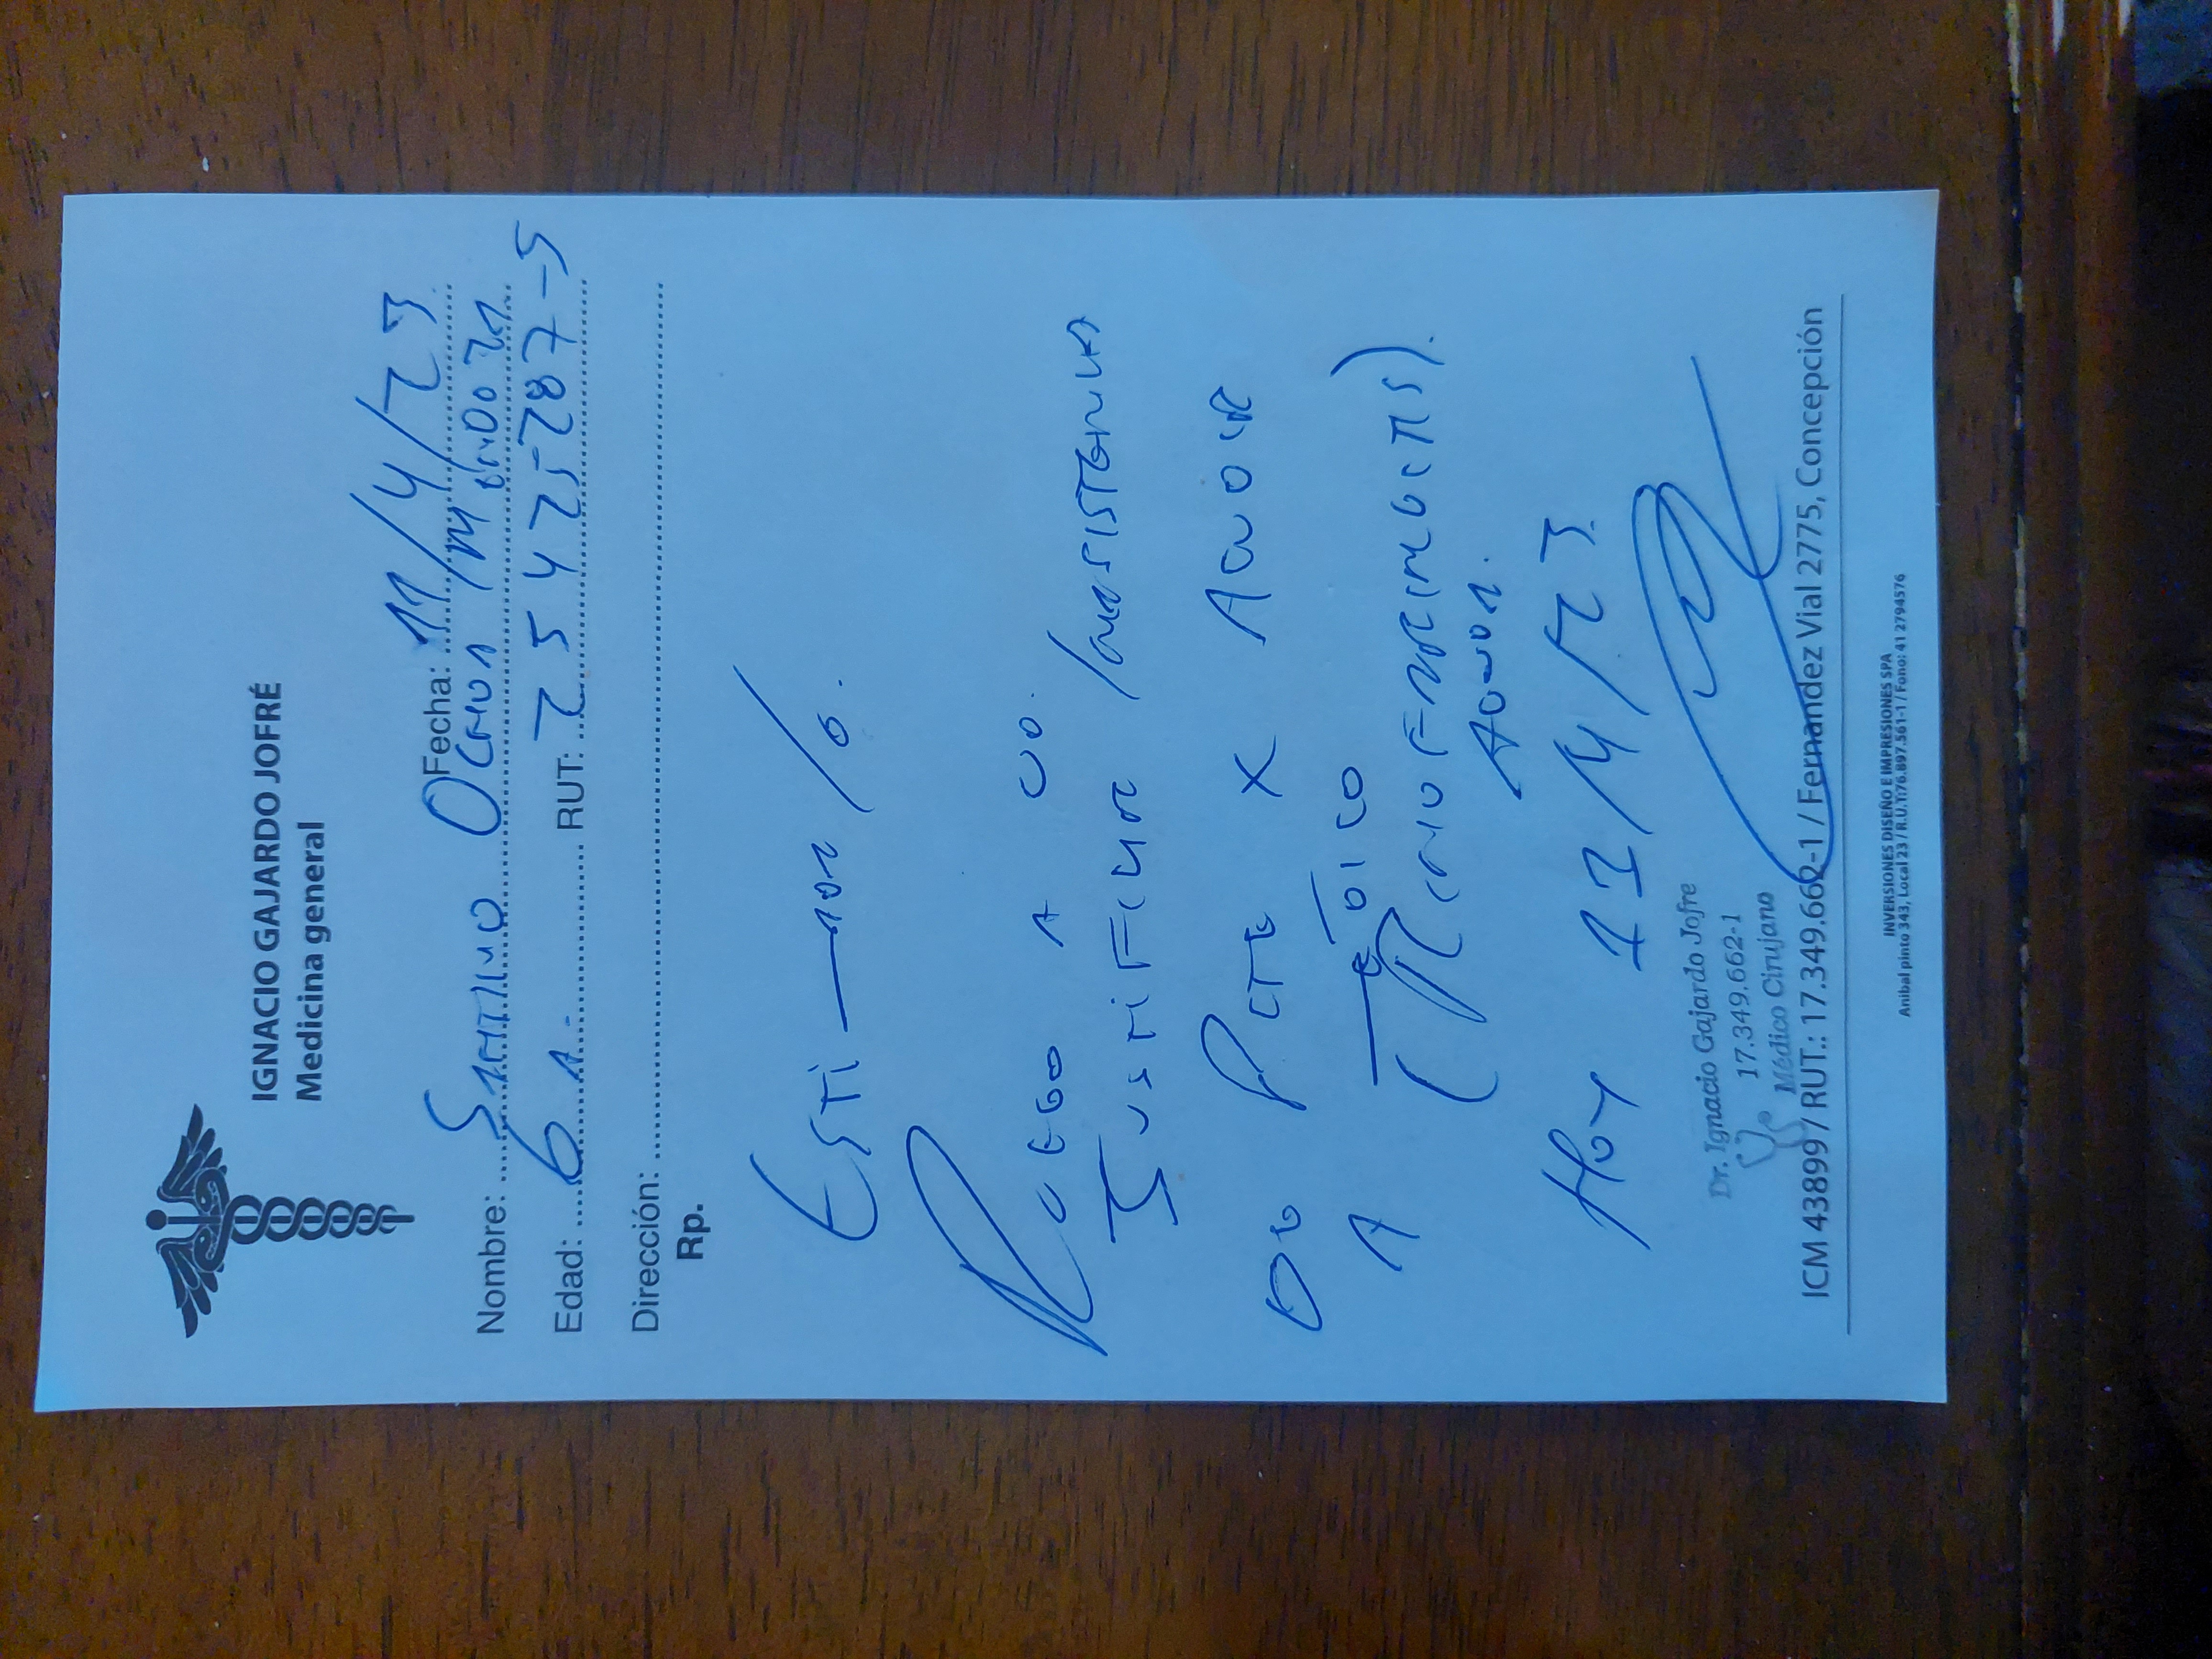 IGNACIO GAJARDO JOFRÉ
Medicina general
Fecha: 11/4/23
Nombre: Santiago Ochoa Mendoza
Edad: 6 A. RUT: 25425287-5
Dirección:
Rp.
Esti—ado/a.
Ruego a ud.
Justificar inasistencia
De Pcte x acudir
A médico
(Rinofaringitis).
Aguda.
Hoy 11/4/23.
Dr. Ignacio Gajardo Jofre
17.349.662-1
Médico Cirujano
ICM 43899 / RUT.: 17.349.662-1 / Fernandez Vial 2775, Concepción
INVERSIONES DISEÑO E IMPRESIONES SPA
Anibal pinto 343, Local 23 / R.U.T: 76.897.561-1 / Fono: 41 2794576